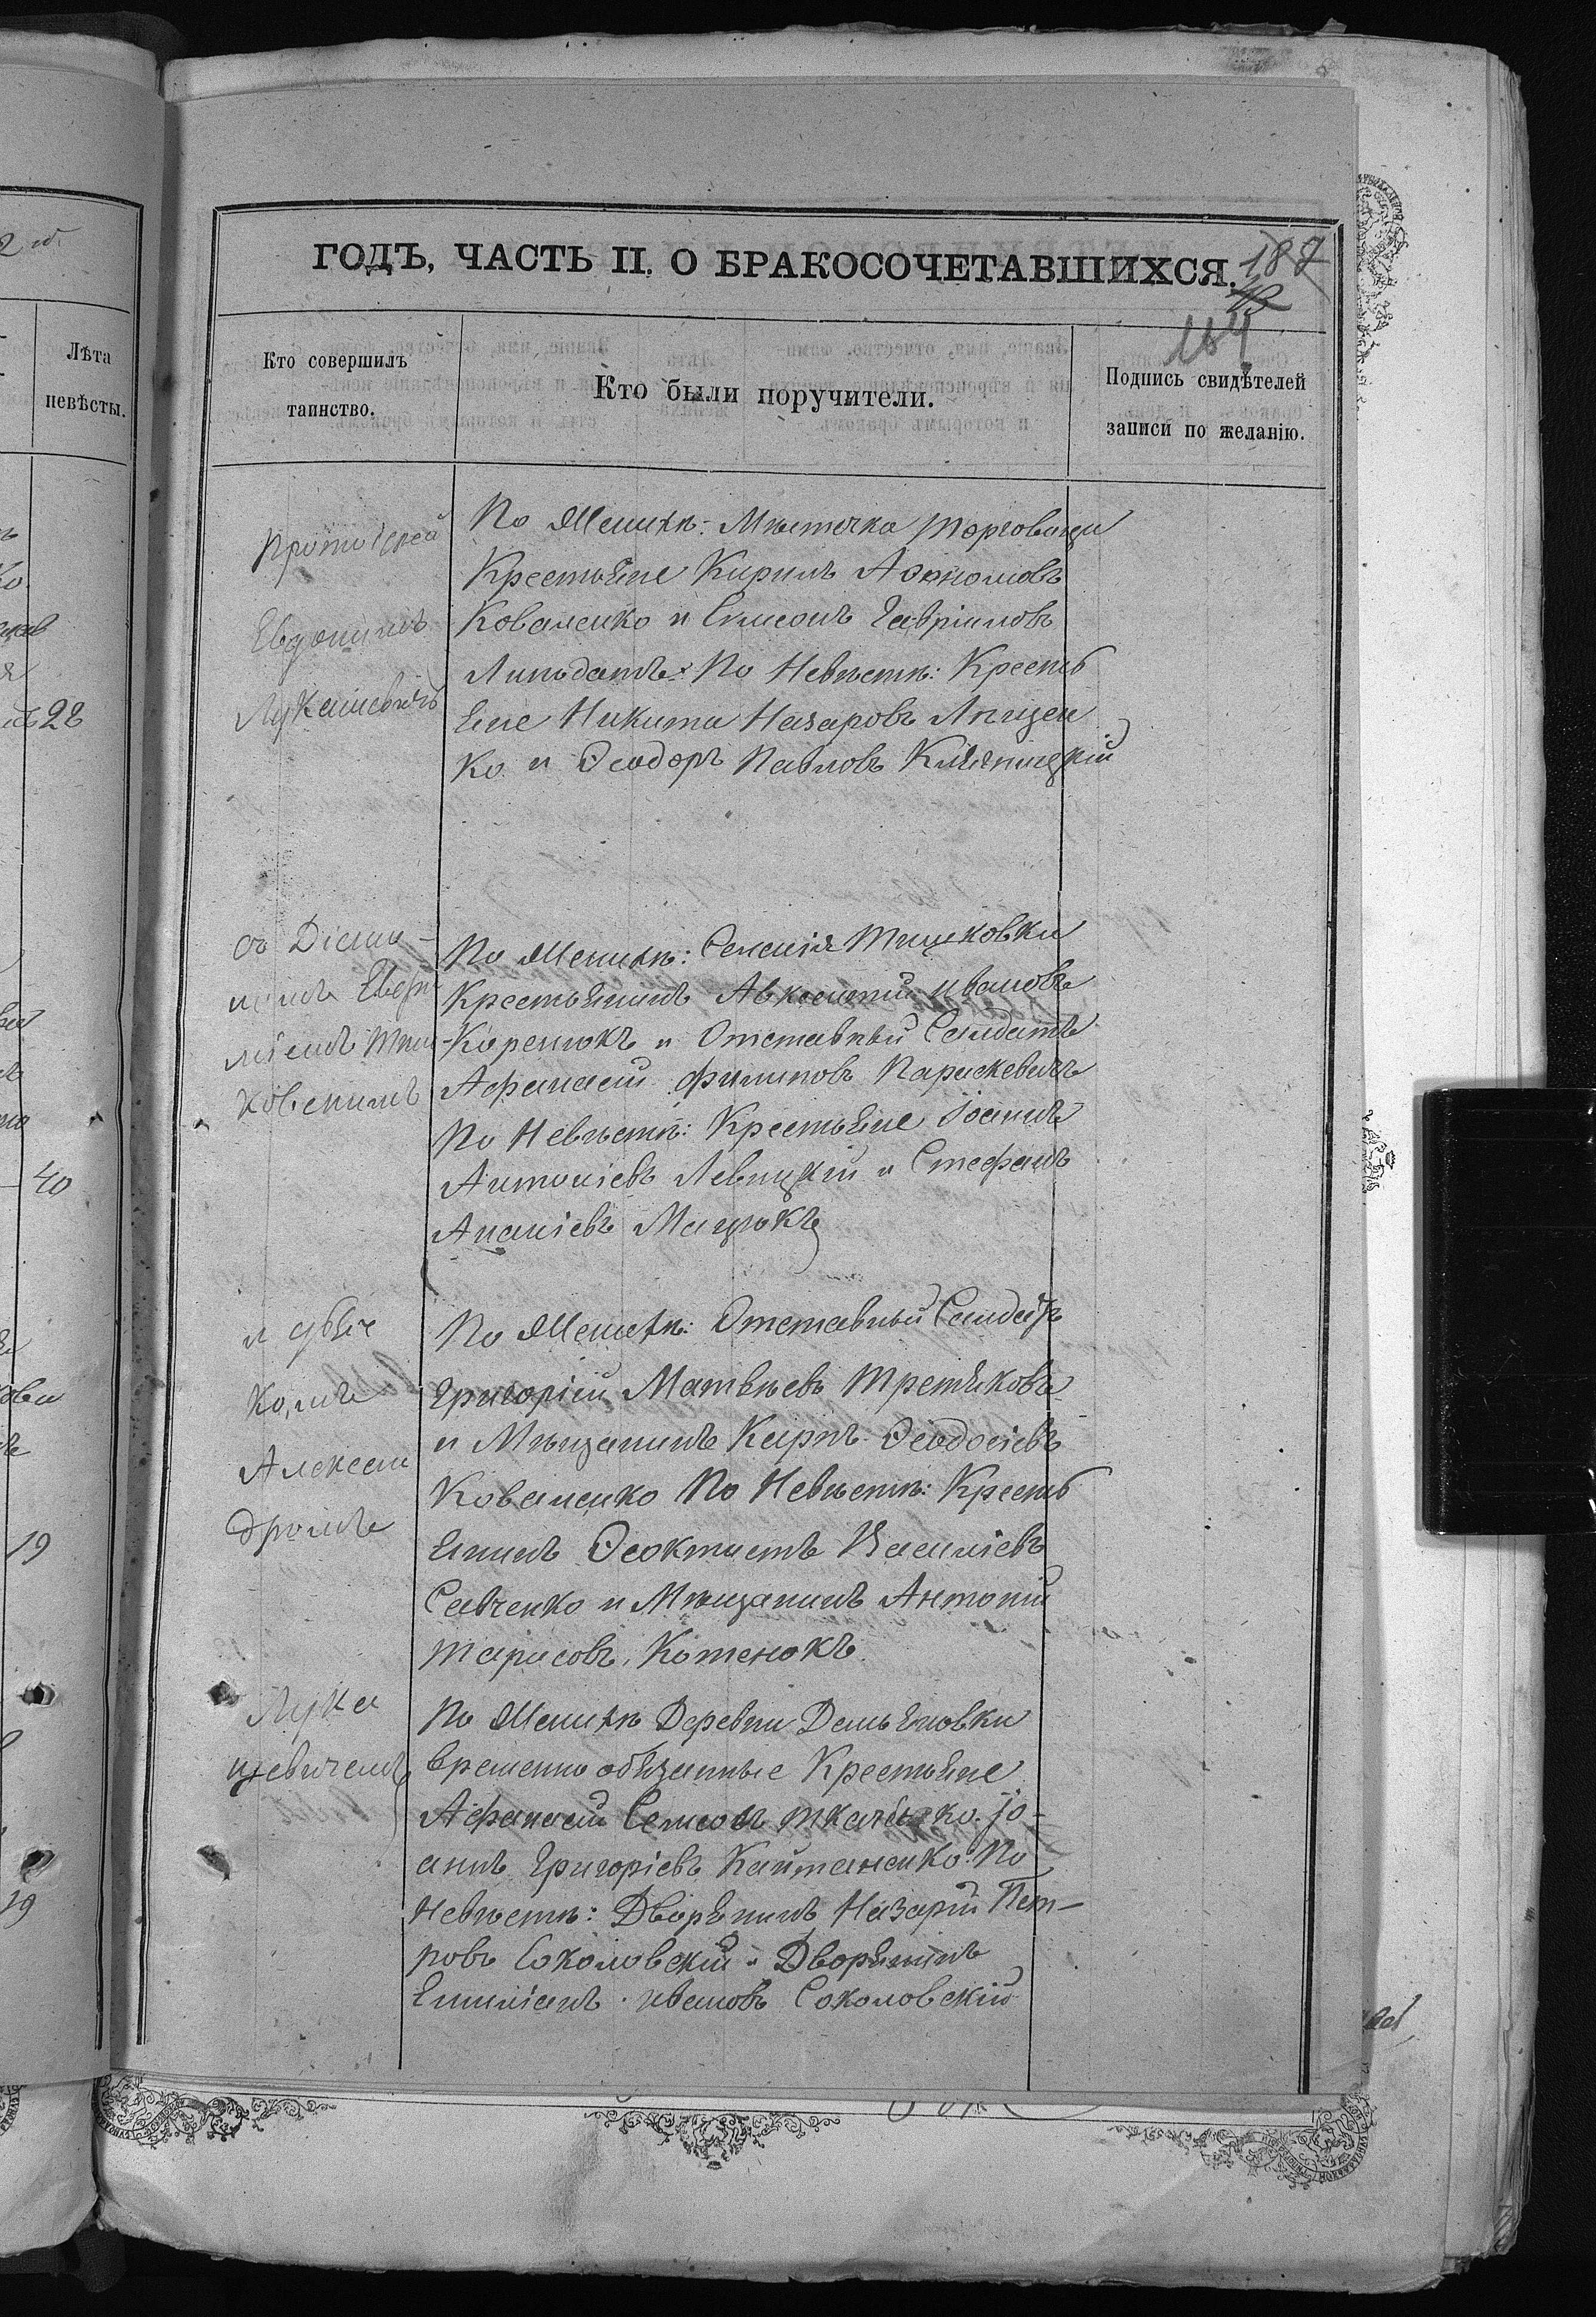 2 го
Лѣта
невѣсты.
28
40
19
19
ГОДЪ, ЧАСТЬ II, О БРАКОСОЧЕТАВШИХСЯ.
187
184
Кто совершилъ
таинство.
Кто были поручители.
Подпись свидѣтелей
записи по желанію.
Протоіерей
Евдокимъ
Лукашевичъ
По Женихѣ: Мѣстечка Торговицы
Крестьяне Кирилъ
Коваленко и Симеонъ Гавріиловъ
По Невѣстѣ: Кресть
яне Никита Назаровъ
ко и Ѳеодоръ Павловъ
съ Діако-
номъ
Тиш-
ковскимъ
По Женихѣ: Селенія Тишковки
Крестьянинъ Авксентій Ивановъ
Коренюкъ и Отставный Салдатъ
Афанасій Филиповъ Параскевичъ
По Невѣстѣ: Крестьяне Іоаннъ
Антоніевъ Левицкій и Стефанъ
Ананіевъ Мацюкъ
и дьяч
комъ
Алексан
дромъ
По Женихѣ: Отставный Салдатъ
Григорій Матвѣевъ Третяковъ
и Мѣщанинъ Карпъ Ѳеодосіевъ
Коваленко По Невѣстѣ: Кресть
янинъ Ѳеоктистъ Василіевъ
Савченко и Мѣщанинъ Антоній
Тарасовъ Котенокъ.
Лука
шевичемъ
По Женихѣ Деревни Демьяновки
временно обязанные Крестьяне
Афанасій Іо-
аннъ Григоріевъ Кайтаненко. По
Невѣстѣ: Дворянинъ Назарій Пет-
ровъ Соколовскій и Дворянинъ
Емиліанъ Ивановъ Соколовскій